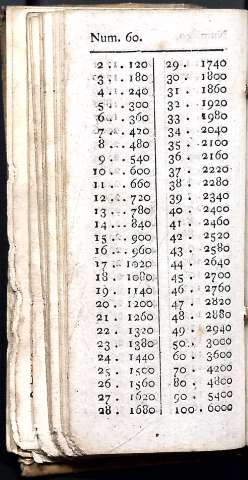 Num. 60.
2 . . 120
3 . . 180
4 . . 240
5 . . 300
6 . . 360
7 . . 420
8 . . 480
9 . . 540
10 . . 600
11 . . 660
12 . . 720
13 . . 780
14 . . 840
15 . . 900
16 . . 960
17 . 1020
18 . 1080
19 . 1140
20 . 1200
21 . 1260
22 . 1320
23 . 1380
24 . 1440
25 . 1500
26 . 1560
27 . 1620
28 . 1680
29 . 1740
30 . 1800
31 . 1860
32 . 1920
33 . 1980
34 . 2040
35 . 2100
36 . 2160
37 . 2220
38 . 2280
39 . 2340
40 . 2400
41 . 2460
42 . 2520
43 . 2580
44 . 2640
45 . 2700
46 . 2760
47 . 2820
48 . 2880
49 . 2940
50 . 3000
60 . 3600
70 . 4200
80 . 4800
90 . 5400
100 . 6000